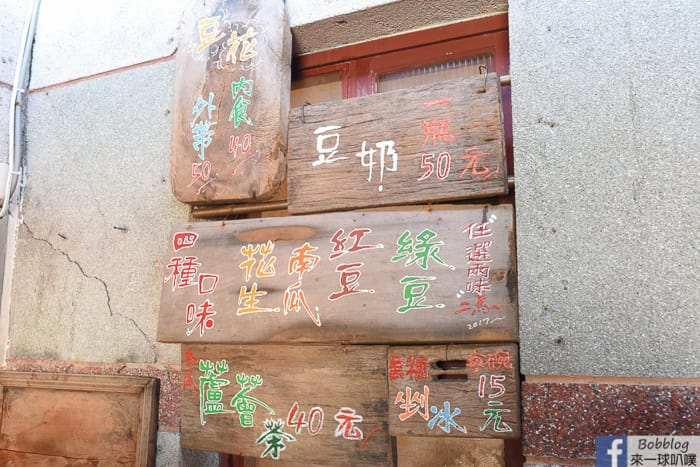 豆花
內食40
外帶50
豆奶
一瓶
50元
四種口味
花生
南瓜
紅豆
綠豆
任選兩味
2017~
蘆薈茶40元
每碗
剉冰
15元
Bobblog
來一球叭噗